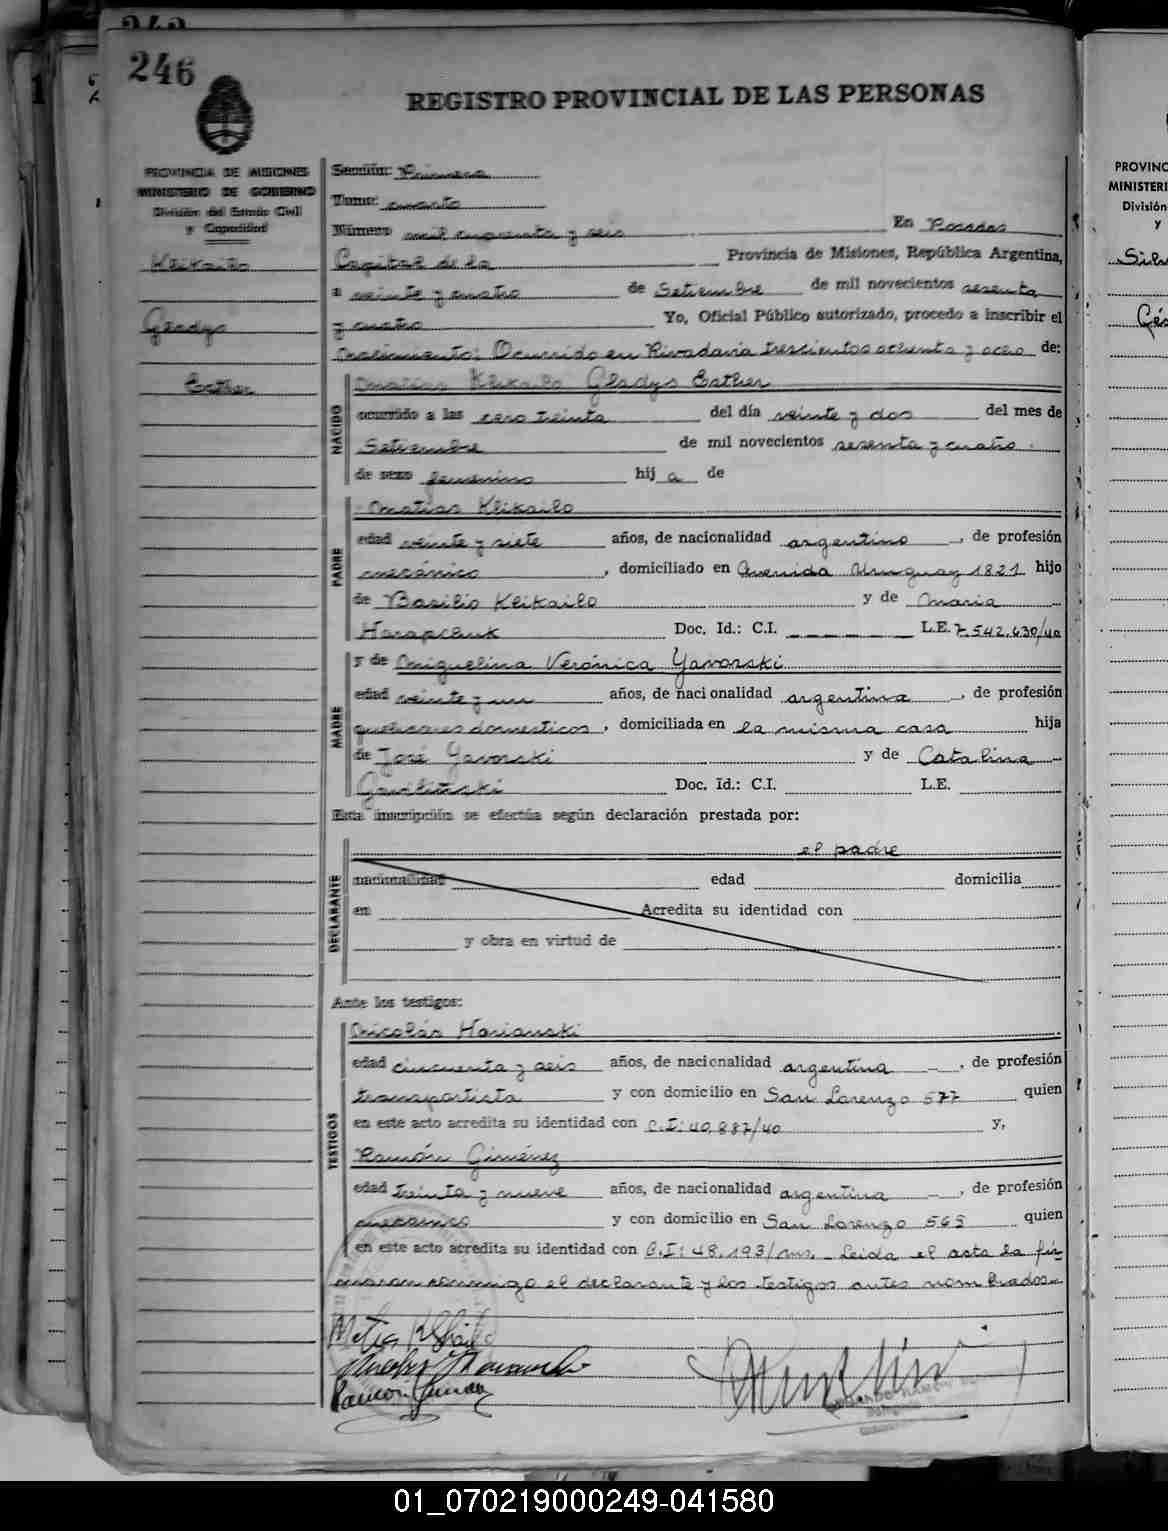 246
REGISTRO PROVINCIAL DE LAS PERSONAS
PROVINCIA DE MISIONES
MINISTERIO DE GOBIERNO
División del Estado Civil
y Capacidad
Klikailo
Gladys
Esther
Sección: Primera
Tomo: cuarto
Número mil cuarenta y seis En Posadas
Capital de la Provincia de Misiones, República Argentina,
a veinte y cuatro de Setiembre de mil novecientos sesenta
y cuatro Yo, Oficial Público autorizado, procedo a inscribir el
nacimiento: Ocurrido en Rivadavia trescientos ochenta y ocho de:
NACIDO
Klikailo Gladys Esther
ocurrido a las cero treinta del día veinte y dos del mes de
Setiembre de mil novecientos sesenta y cuatro.
de sexo femenino hij a de
PADRE
Matías Klikailo
edad veinte y siete años, de nacionalidad argentino, de profesión
mecánico, domiciliado en Avenida Uruguay 1821 hijo
de Basilio Klikailo y de Maria
Harapchuk Doc. Id.: C.I. L.E. 7.542.630/40
MADRE
y de Miguelina Verónica Yavorski
edad veinte y un años, de nacionalidad argentina, de profesión
quehaceres domesticos, domiciliada en la misma casa hija
de José Yavorski y de Catalina
Doc. Id.: C.I. L.E.
Esta inscripción se efectúa según declaración prestada por:
DECLARANTE
el padre
nacionalidad edad domicilia
en Acredita su identidad con
y obra en virtud de
Ante los testigos:
TESTIGOS
Nicolás Harianski
edad cincuenta y seis años, de nacionalidad argentina, de profesión
transportista y con domicilio en San Lorenzo 577 quien
en este acto acredita su identidad con C.I: 40.887/40 y,
Ramón Giménez
edad treinta y nueve años, de nacionalidad argentina, de profesión
mecánico y con domicilio en San Lorenzo 565 quien
en este acto acredita su identidad con C.I: 48.193/ms. Leida el acta la fir-
maron conmigo el declarante y los testigos antes nombrados.
PROVINC
MINISTERI
División
y
01_070219000249-041580